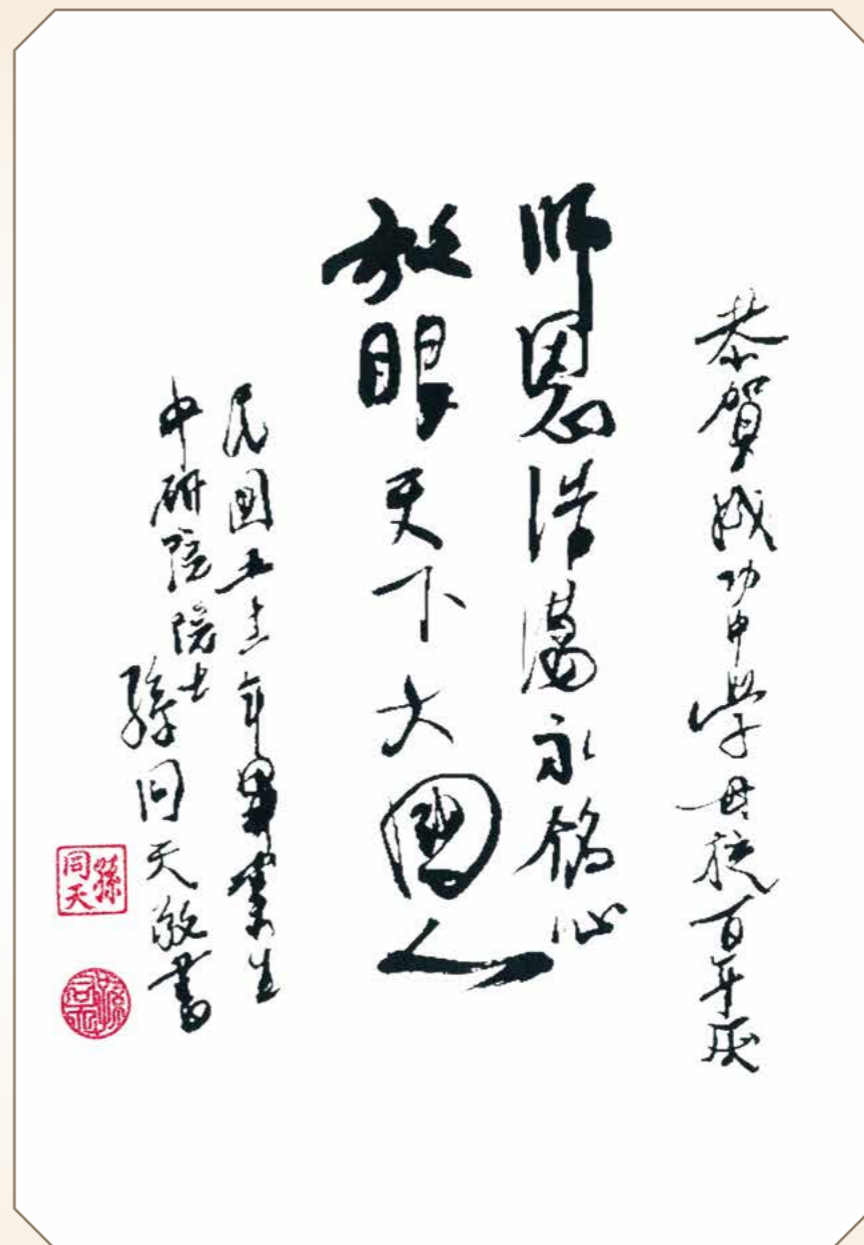 恭賀成功中學母校百年慶
師恩浩蕩永銘心
放眼天下大國人
民國五年畢業生
中研院院士
孫同天敬書
孫同天